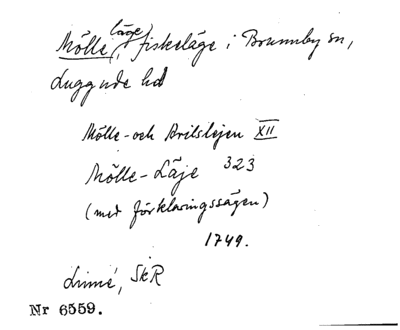 Mölle(läge), fiskeläge i Brunnby sn,
Luggude hd
Mölle- och Arilslejen XII
Mölle-Läje 323
(med förklaringssägen)
1749.
Linné, SkR
Nr 6559.